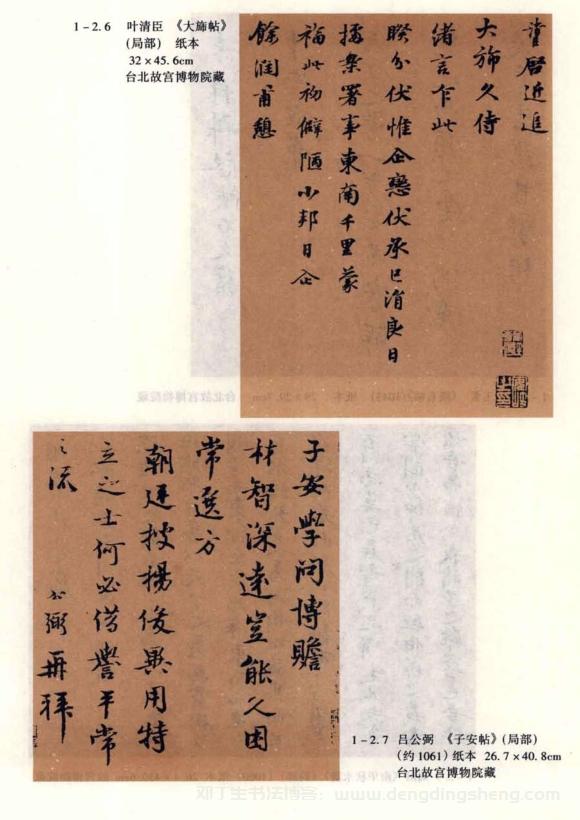 1-2.6 叶清臣 《大旆帖》
(局部) 纸本
32×45.6cm
台北故宫博物院藏
啓近追
大旆久侍
緒言乍此
睽分伏惟企戀伏承已消良日
據案署事東南千里蒙
福此初僻陋小邦日企
餘潤甫憩
子安學問博贍
材智深遠豈能久困
常選方
朝廷披揚俊異用特
立之士何必借譽平常
之流
公弼再拜
1-2.7 吕公弼 《子安帖》(局部)
(约1061)纸本 26.7×40.8cm
台北故宫博物院藏
邓丁生书法博客：www.dengdingsheng.com